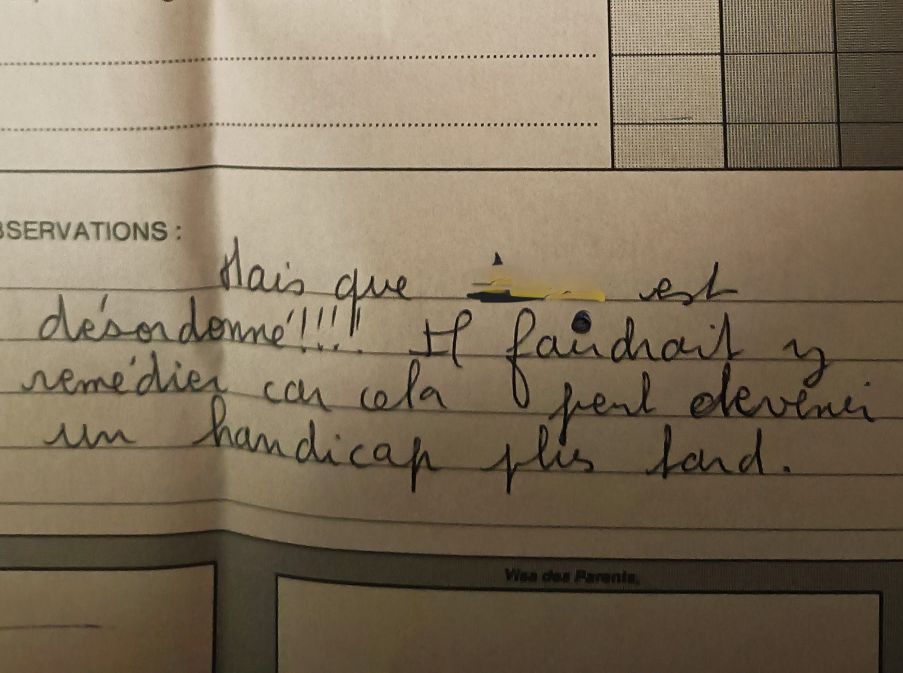 BSERVATIONS :
Mais que est
désordonné!!!! Il faudrait y
remédier car cela peut devenir
un handicap plus tard.
Visa des Parents,